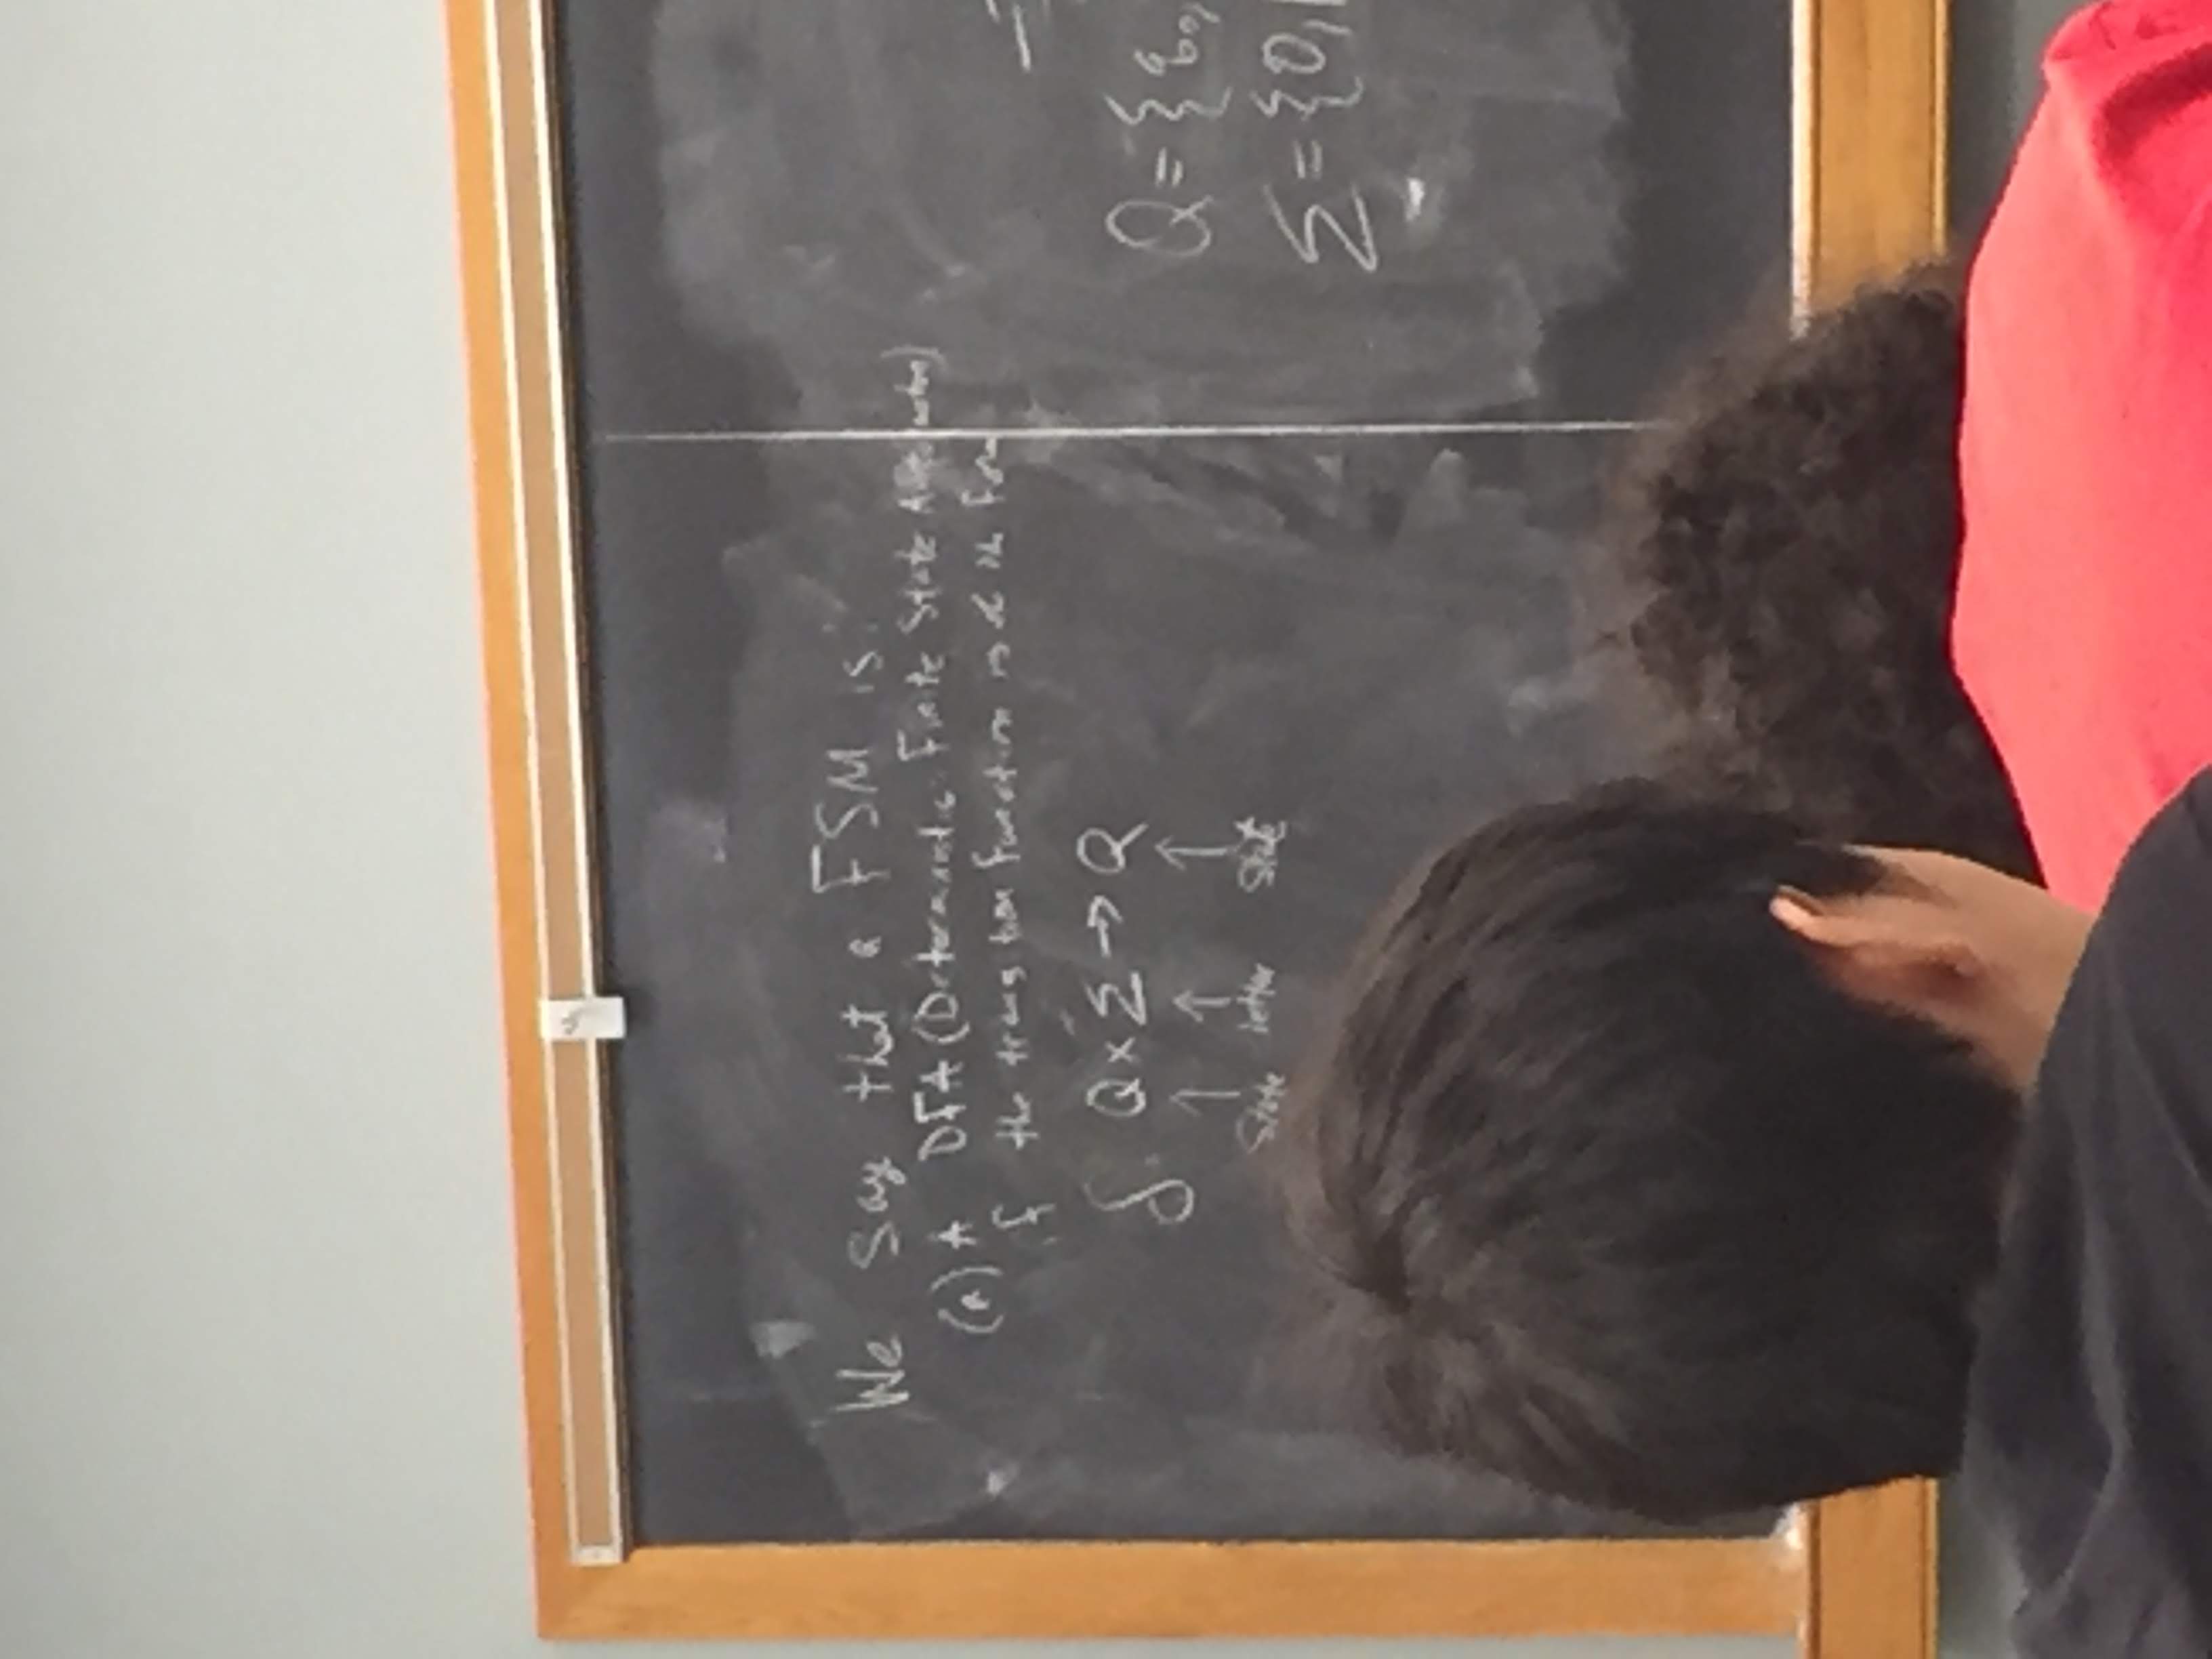 We say that a FSM is:
(a) A DFA (Deterministic Finite State Automaton)
if the transition function is of the form
δ: Q × Σ → Q
↑ ↑ ↑
state letter state
Q = {q₀,
Σ = {0,1